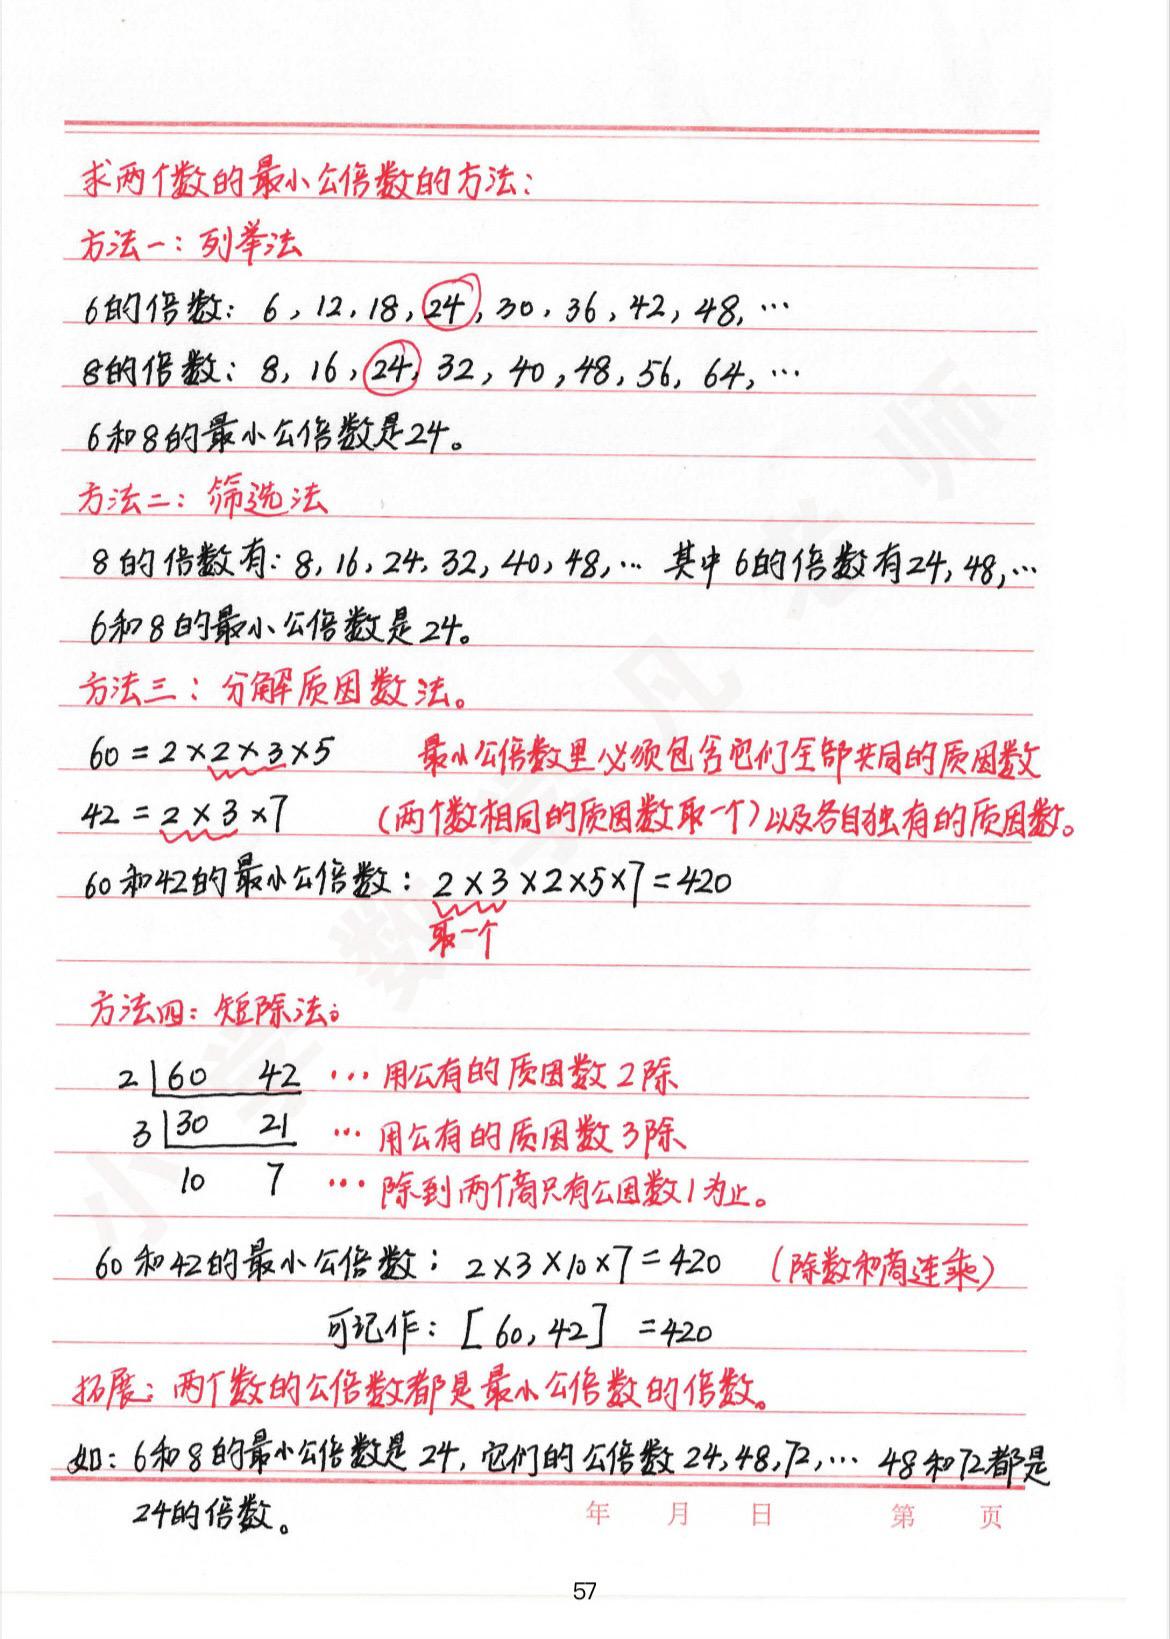 求两个数的最小公倍数的方法：
方法一：列举法
6的倍数：6，12，18，24，30，36，42，48，…
8的倍数：8，16，24，32，40，48，56，64，…
6和8的最小公倍数是24。
方法二：筛选法
8的倍数有：8，16，24，32，40，48，… 其中6的倍数有24，48，…
6和8的最小公倍数是24。
方法三：分解质因数法。
60=2×2×3×5 最小公倍数里必须包含它们全部共同的质因数
42=2×3×7 （两个数相同的质因数取一个）以及各自独有的质因数。
60和42的最小公倍数：2×3×2×5×7=420
取一个
方法四：短除法：
2 60 42 … 用公有的质因数2除
3 30 21 … 用公有的质因数3除
10 7 … 除到两个商只有公因数1为止。
60和42的最小公倍数：2×3×10×7=420 （除数和商连乘）
可记作：[60，42]=420
拓展：两个数的公倍数都是最小公倍数的倍数。
如：6和8的最小公倍数是24，它们的公倍数24，48，72，… 48和72都是
24的倍数。
年 月 日 第 页
57
小学数学凡老师